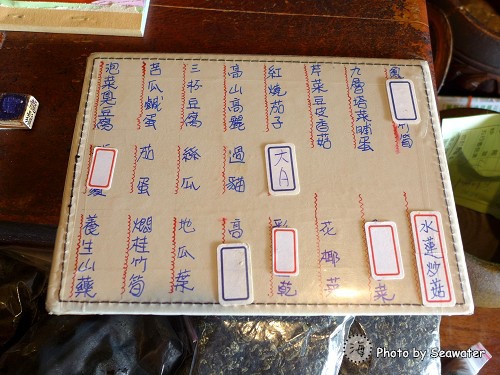 竹筍
九層塔菜脯蛋
芹菜豆皮香菇
紅燒茄子
高山高麗
三杯豆腐
苦瓜鹹蛋
泡菜臭豆腐
大A
過貓
絲瓜
茄蛋
水蓮炒菇
菜
花椰菜
乾
高
地瓜葉
燜桂竹筍
養生山藥
海
Photo by Seawater